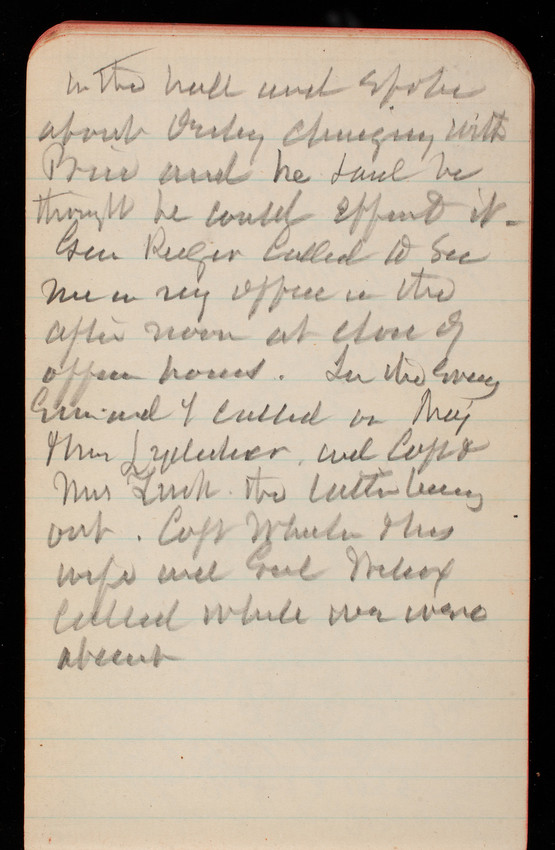 in the hall and spoke
about changing with
Price and he said he
thought he could effect it -
Gen Ruger called to see
me in my office in the
after noon at close of
office hours. In the Evening
and I called on Maj
& Mrs and Capt &
Mrs the latter being
out. Capt Wheeler & his
wife and Genl Wilcox
called while we were
absent